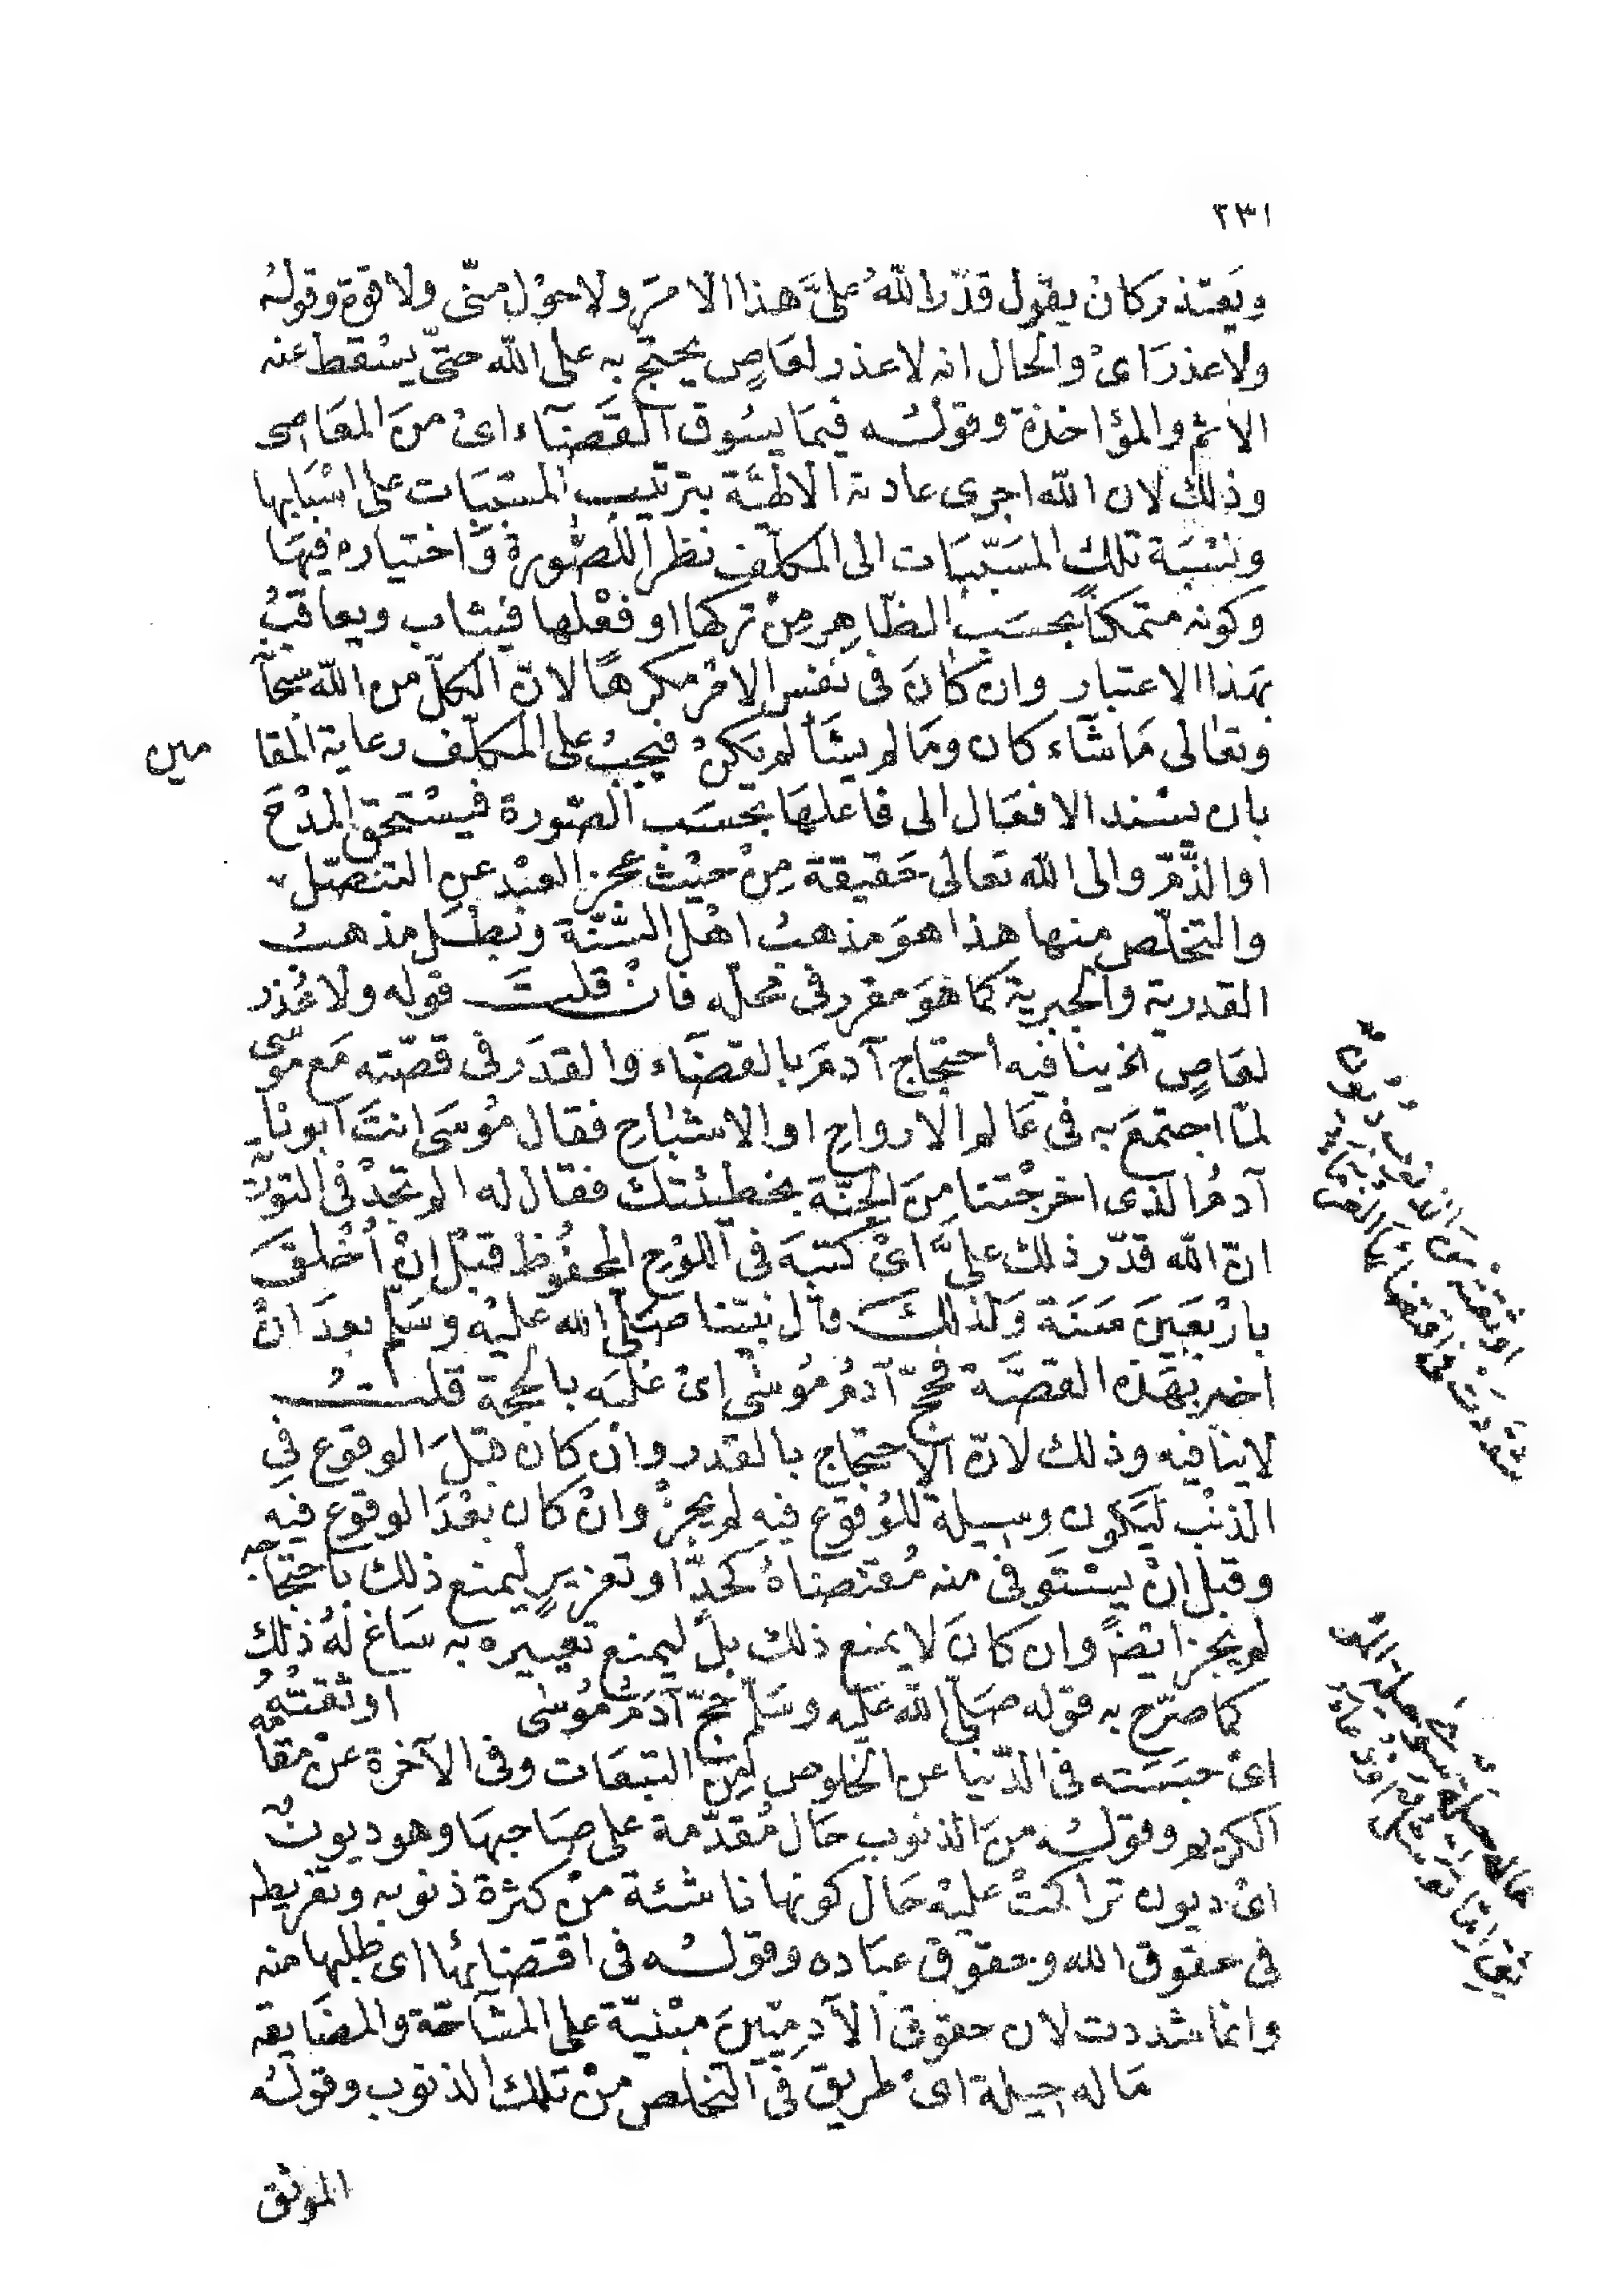 ٢٣١
ويعتذر كان يقول قدّر اللّه علىَّ هذا الامر ولا حول منّى ولا قوة وقوله
ولا عذر اىْ والحال انه لا عذر لعاصٍ يحتج به على اللّه حتّى يسقط عنه
الاثم والمؤاخذة وقوله فيما يسوق القضآء اىْ منَ المعَاصى
وذلك لان اللّه اجرى عادته الالٰهيَّة بترتيب المسببَات على اسْبَابها
ونسْبَة تلك المسَبّبَات الى المكلّف نظراً للصّورة وَاختياره فيهَا
وكونه متمكناً بحسَب الظّاهِر مِنْ تركها او فعْلها فيثاب ويعاقبُ
بهَذا الاعتبار وان كانَ فى نفس الامْر مكرهًا لانّ الكلّ من اللّه سبحانه
وتعالى مَا شآء كان ومَا لم يشَأ لم يكنْ فيجبُ على المكلّف رعاية المقامين
بان يسْند الافعَال الى فاعلهَا بحسَب الصّورة فيسْتحق المدْحَ
او الذَّمّ والى اللّه تعالى حَقيقة مِنْ حيْث عجز العبْد عن التنصّل
والتخلّص منها هذا هوَ مذهبُ اهْل السُّنّة وبطَل مذهبُ
القدرية والجبرية كما هوَ مقرر فى محلّه فان قلتَ قوله ولا عُذر
لعَاصٍ الخ ينافيه احتجاج آدمَ بالقضَاء والقدَر فى قصّته مَع موسَى
لمّا اجتمعَ به فى عَالم الارواح او الاشبَاح فقال مُوسَى انتَ ابونا
آدمُ الذى اخرجْتنا منَ الجنّة بخطيئتك فقال له الم تجدْ فى التورٰية
انّ اللّه قدّر ذلك علىَّ اىْ كتبَهُ فى اللوْح المحفُوظ قبْل انْ اُخْلقَ
باربَعِينَ سَنَة وَلذلكَ قال نبيّنا صَلّى الله عليْه وسَلّم بعدَ انْ
اخبر بهَذه القصَّة فحجّ آدمُ مُوسَى اىْ غلبَه بالحجة قلتُ
لا ينَافيه وذلك لانّ الاحتجاج بالقدر وانْ كان قبْلَ الوقوع فى
الذنْب ليَكون وسيلة للوُقوع فيه لم يجزْ وانْ كان بعْدَ الوقوع فيه
وقبل انْ يسْتَوفى منه مُقتضَاهُ كحدٍّ او تعزيرٍ ليمنع ذلك باحتجاجه
لم يجز ايضًا وان كانَ لا يمنع ذلك بل ليمنع تعييره به سَاغ لهُ ذلك
كما صرّح به قوله صَلّى اللّه عليْه وسَلّم فحجّ آدَمُ مُوسٰى اوثقتْهُ
اىْ حبَسَته فى الدّنيَا عن الخلوص مِنَ التبعَات وفى الآخرة عنْ مقامه
الكريم وقوله منَ الذنوب حَال مُقدّمة على صَاحبهَا وهو ديونٌ
اىْ ديون تراكمتْ عليْه حَال كونها ناشئة منْ كثرة ذنوبه وتفريطه
فى حقوق الله وحقوق عبَاده وقولُه فى اقتضَائها اى طلبها منه
وانما شددت لان حقوق الآدميّينَ مبْنيّة على المشَآحّة والمضَايقة
مَا له حيلة اىْ طريق فى التخلص منْ تلك الذنوب وقولهُ
الموثق
اوثقته من الذنوب ديون
شددت فى اقتضائها الغرماء